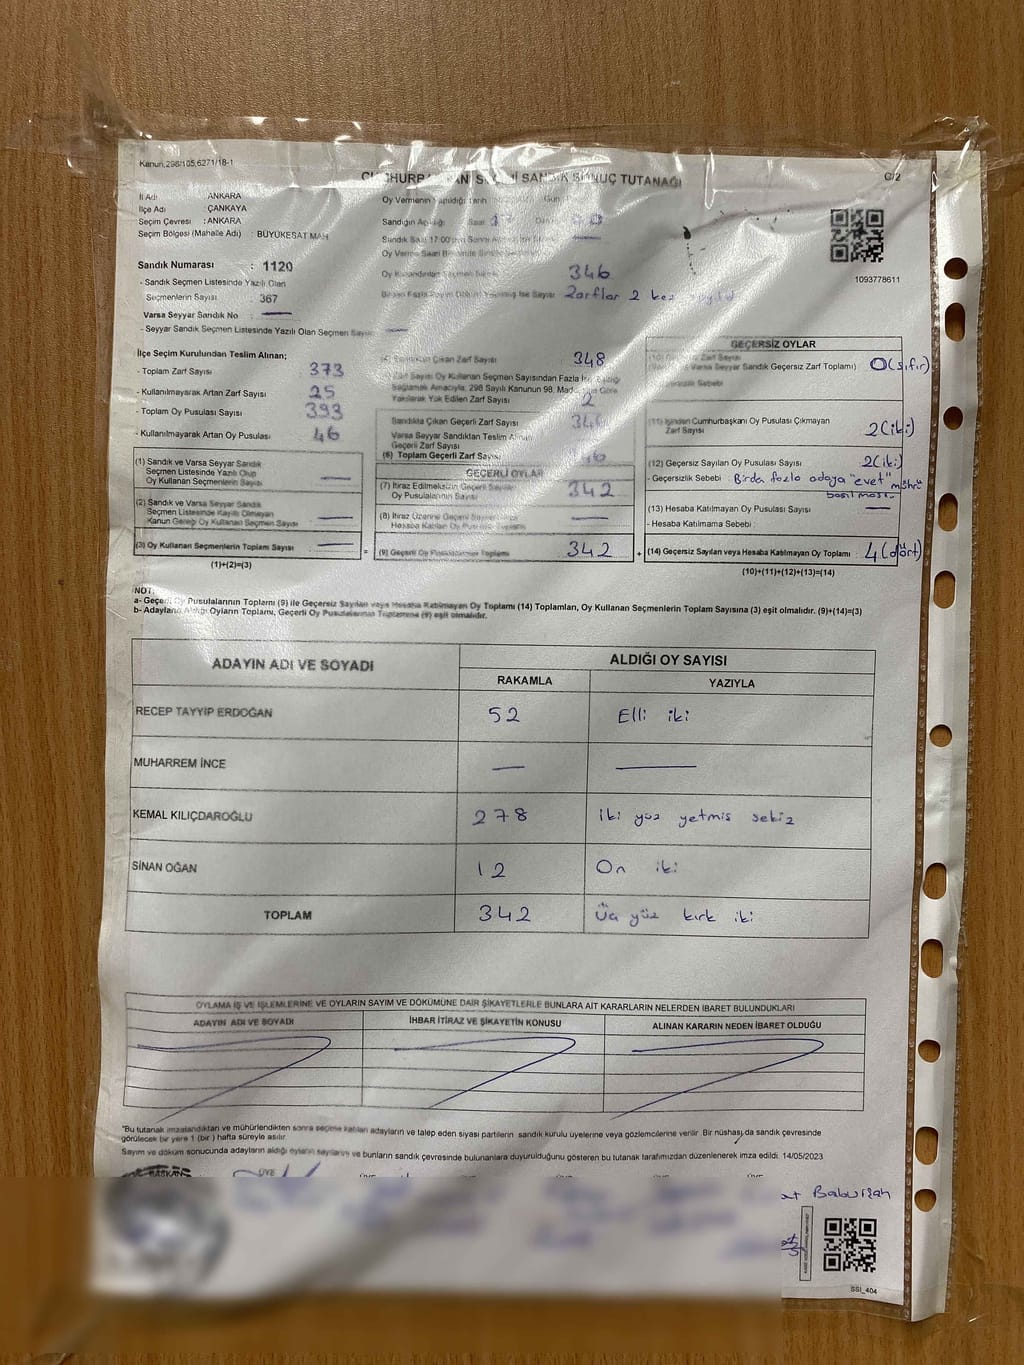 Kanun,298/105,6271/18-1
SANDIK SONUÇ TUTANAĞI
C/2
İl Adı ANKARA
İlçe Adı ÇANKAYA
Seçim Çevresi : ANKARA
Seçim Bölgesi (Mahalle Adı) : BÜYÜKESAT MAH
Sandık Numarası : 1120
- Sandık Seçmen Listesinde Yazılı Olan
Seçmenlerin Sayısı 367
Varsa Seyyar Sandık No : —
- Seyyar Sandık Seçmen Listesinde Yazılı Olan Seçmen Sayısı —
Oy Vermenin Yapıldığı Tarih Gün
Sandığın Açıldığı Saat 17
346
Zarflar 2 kez
1093778611
İlçe Seçim Kurulundan Teslim Alınan;
- Toplam Zarf Sayısı 373
- Kullanılmayarak Artan Zarf Sayısı 25
- Toplam Oy Pusulası Sayısı 393
- Kullanılmayarak Artan Oy Pusulası 46
(1) Sandık ve Varsa Seyyar Sandık
Seçmen Listesinde Yazılı Olup
Oy Kullanan Seçmenlerin Sayısı —
(2) Sandık ve Varsa Seyyar Sandık
Seçmen Listesinde Kayıtlı Olmayan
Kanun Gereği Oy Kullanan Seçmen Sayısı —
(3) Oy Kullanan Seçmenlerin Toplam Sayısı —
(1)+(2)=(3)
Çıkan Zarf Sayısı 348
Zarf Sayısı Oy Kullanan Seçmen Sayısından Fazla
Sağlamak Amacıyla; 298 Sayılı Kanunun 98. Göre
Yakılarak Yok Edilen Zarf Sayısı 2
Sandıkta Çıkan Geçerli Zarf Sayısı 346
Varsa Seyyar Sandıktan Teslim Alınan
Geçerli Zarf Sayısı
(6) Toplam Geçerli Zarf Sayısı
GEÇERLİ OYLAR
(7) İtiraz Edilmeksizin Geçerli Sayılan
Oy Pusulalarının Sayısı 342
(8) İtiraz Üzerine Geçerli
Hesaba Katılan Oy Pusulası —
(9) Geçerli Oy Pusulalarının Toplamı 342
GEÇERSİZ OYLAR
Varsa Seyyar Sandık Geçersiz Zarf Toplamı) 0(sıfır)
(11) İçinden Cumhurbaşkanı Oy Pusulası Çıkmayan
Zarf Sayısı 2(iki)
(12) Geçersiz Sayılan Oy Pusulası Sayısı 2(iki)
- Geçersizlik Sebebi : Birda fazla adaya "evet" mührü
(13) Hesaba Katılmayan Oy Pusulası Sayısı —
- Hesaba Katılmama Sebebi :
(14) Geçersiz Sayılan veya Hesaba Katılmayan Oy Toplamı : 4(dört)
(10)+(11)+(12)+(13)=(14)
NOT:
a- Geçerli Oy Pusulalarının Toplamı (9) ile Geçersiz Sayılan veya Hesaba Katılmayan Oy Toplamı (14) Toplamları, Oy Kullanan Seçmenlerin Toplam Sayısına (3) eşit olmalıdır. (9)+(14)=(3)
b- Adayların Aldığı Oyların Toplamı, Geçerli Oy Pusulalarının Toplamına (9) eşit olmalıdır.
ADAYIN ADI VE SOYADI
ALDIĞI OY SAYISI
RAKAMLA YAZIYLA
RECEP TAYYİP ERDOĞAN 52 Elli iki
MUHARREM İNCE — —
KEMAL KILIÇDAROĞLU 278 İki yüz yetmiş sekiz
SİNAN OĞAN 12 On iki
TOPLAM 342 Üç yüz kırk iki
OYLAMA İŞ VE İŞLEMLERİNE VE OYLARIN SAYIM VE DÖKÜMÜNE DAİR ŞİKAYETLERLE BUNLARA AİT KARARLARIN NELERDEN İBARET BULUNDUKLARI
ADAYIN ADI VE SOYADI İHBAR İTİRAZ VE ŞİKAYETİN KONUSU ALINAN KARARIN NEDEN İBARET OLDUĞU
"Bu tutanak imzalandıktan ve mühürlendikten sonra seçime katılan adayların ve talep eden siyasi partilerin sandık kurulu üyelerine veya gözlemcilerine verilir. Bir nüshası da sandık çevresinde
görülecek bir yere 1 (bir) hafta süreyle asılır.
Sayım ve döküm sonucunda adayların aldığı oyların sayılarını ve bunların sandık çevresinde bulunanlara duyurulduğunu gösteren bu tutanak tarafımızdan düzenlenerek imza edildi. 14/05/2023
BAŞKAN ÜYE
SSI_404